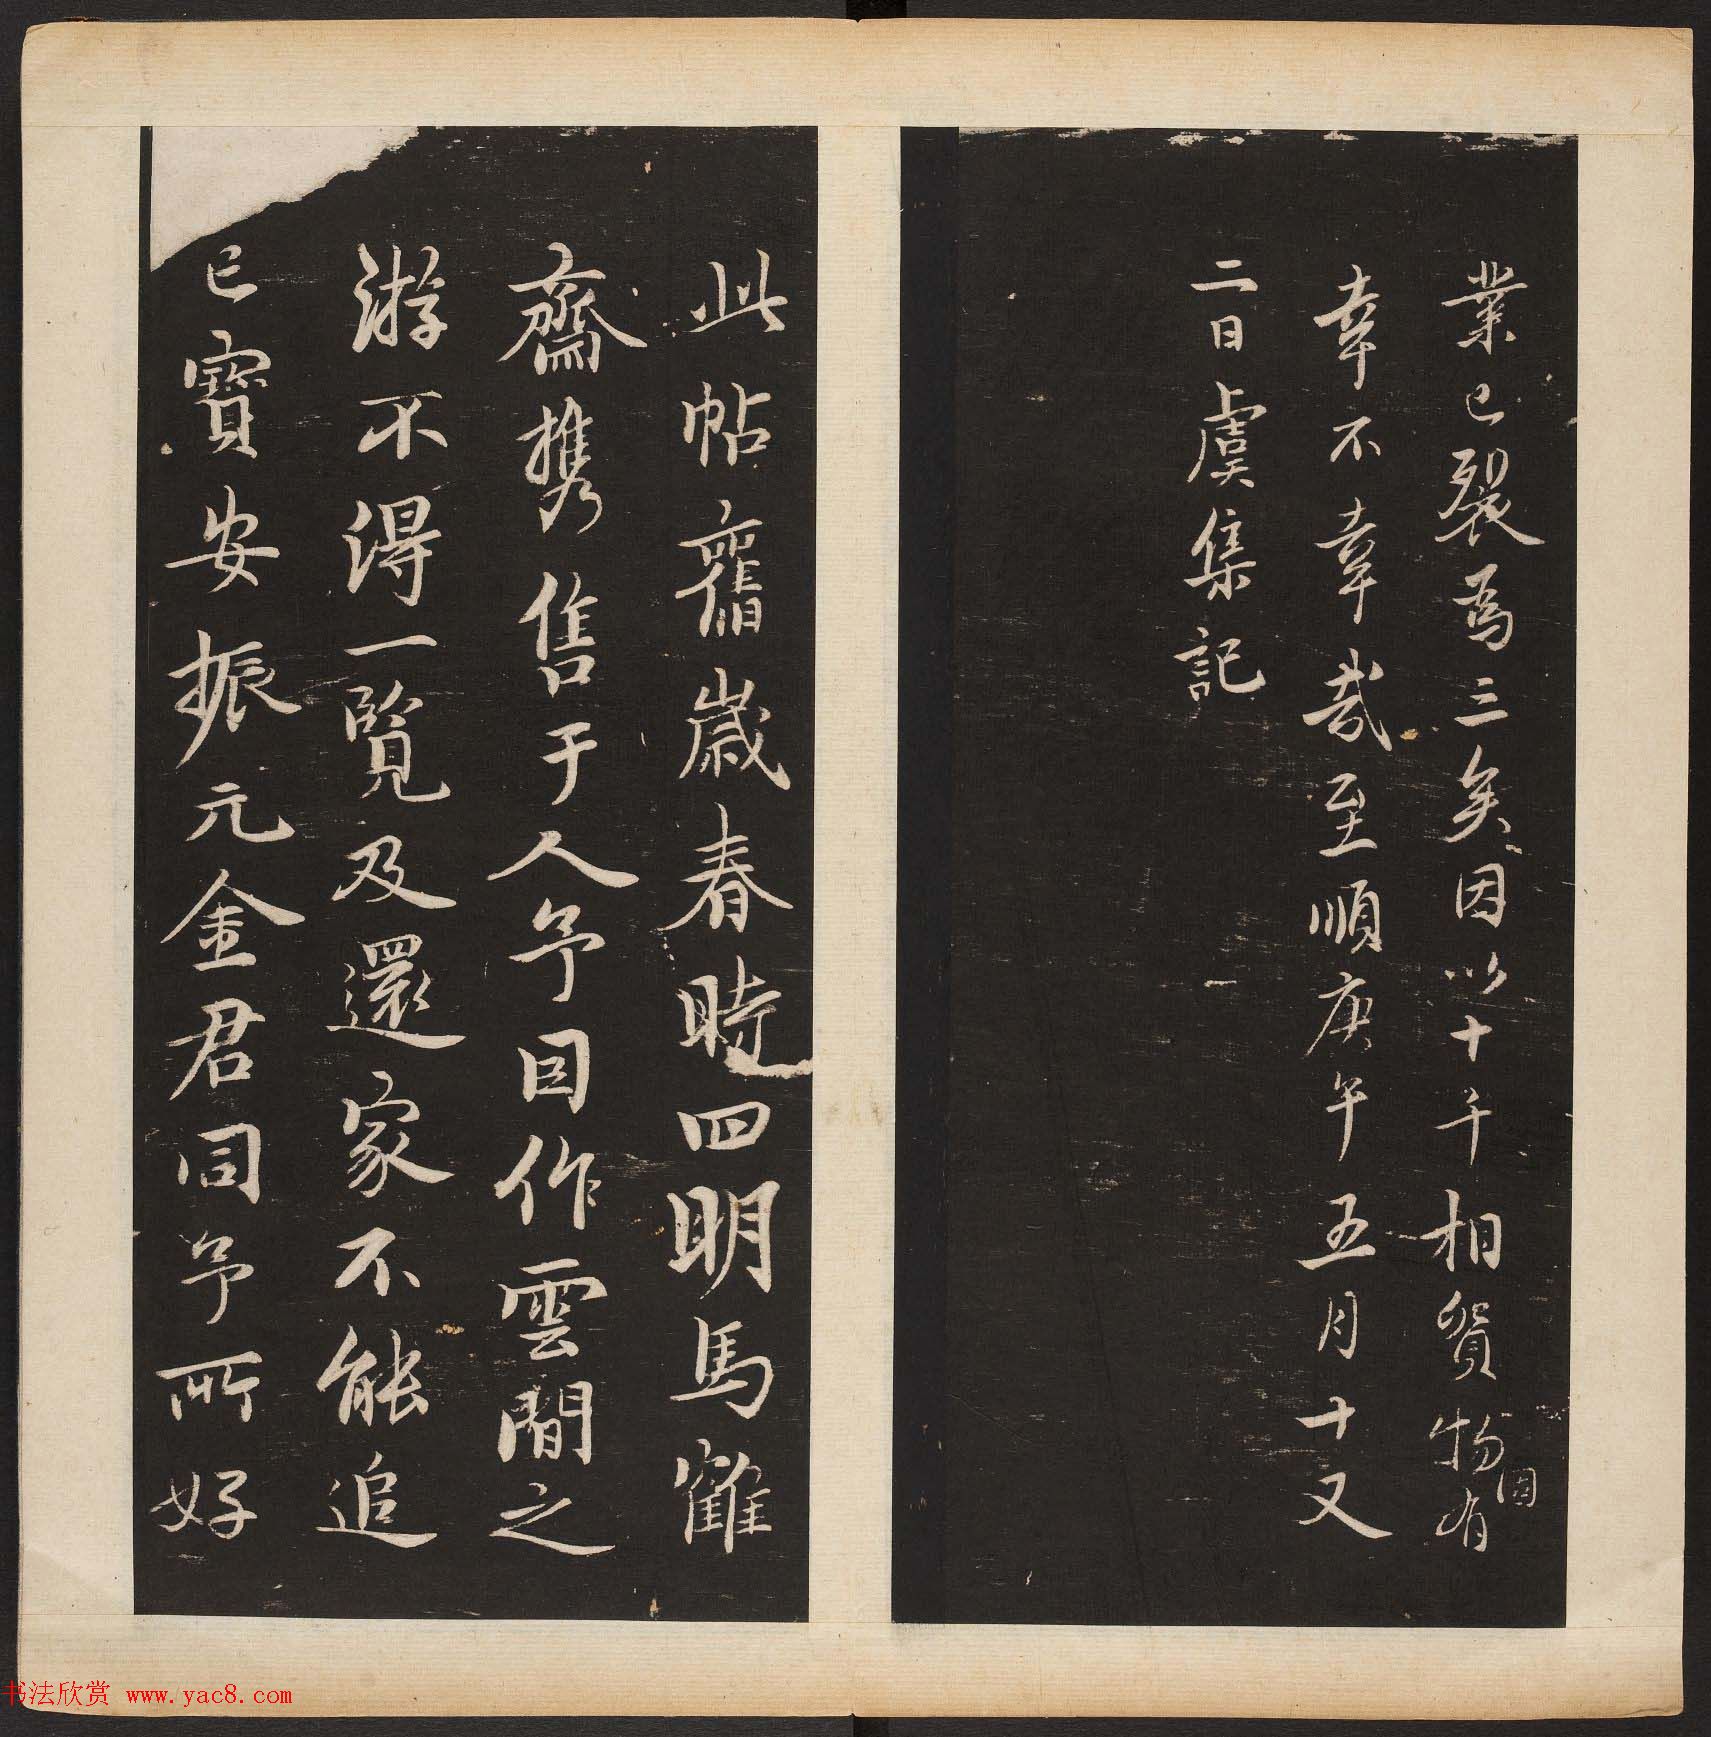 業已裂爲三矣因以十千相賀物固有
幸不幸哉至順庚午五月十又
二日虞集記
此帖舊歲春時四明馬鶴
齋携售于人予目作雲間之
游不得一覽及還家不能追
已寶安振元金君同予所好
书法欣赏 www.yac8.com